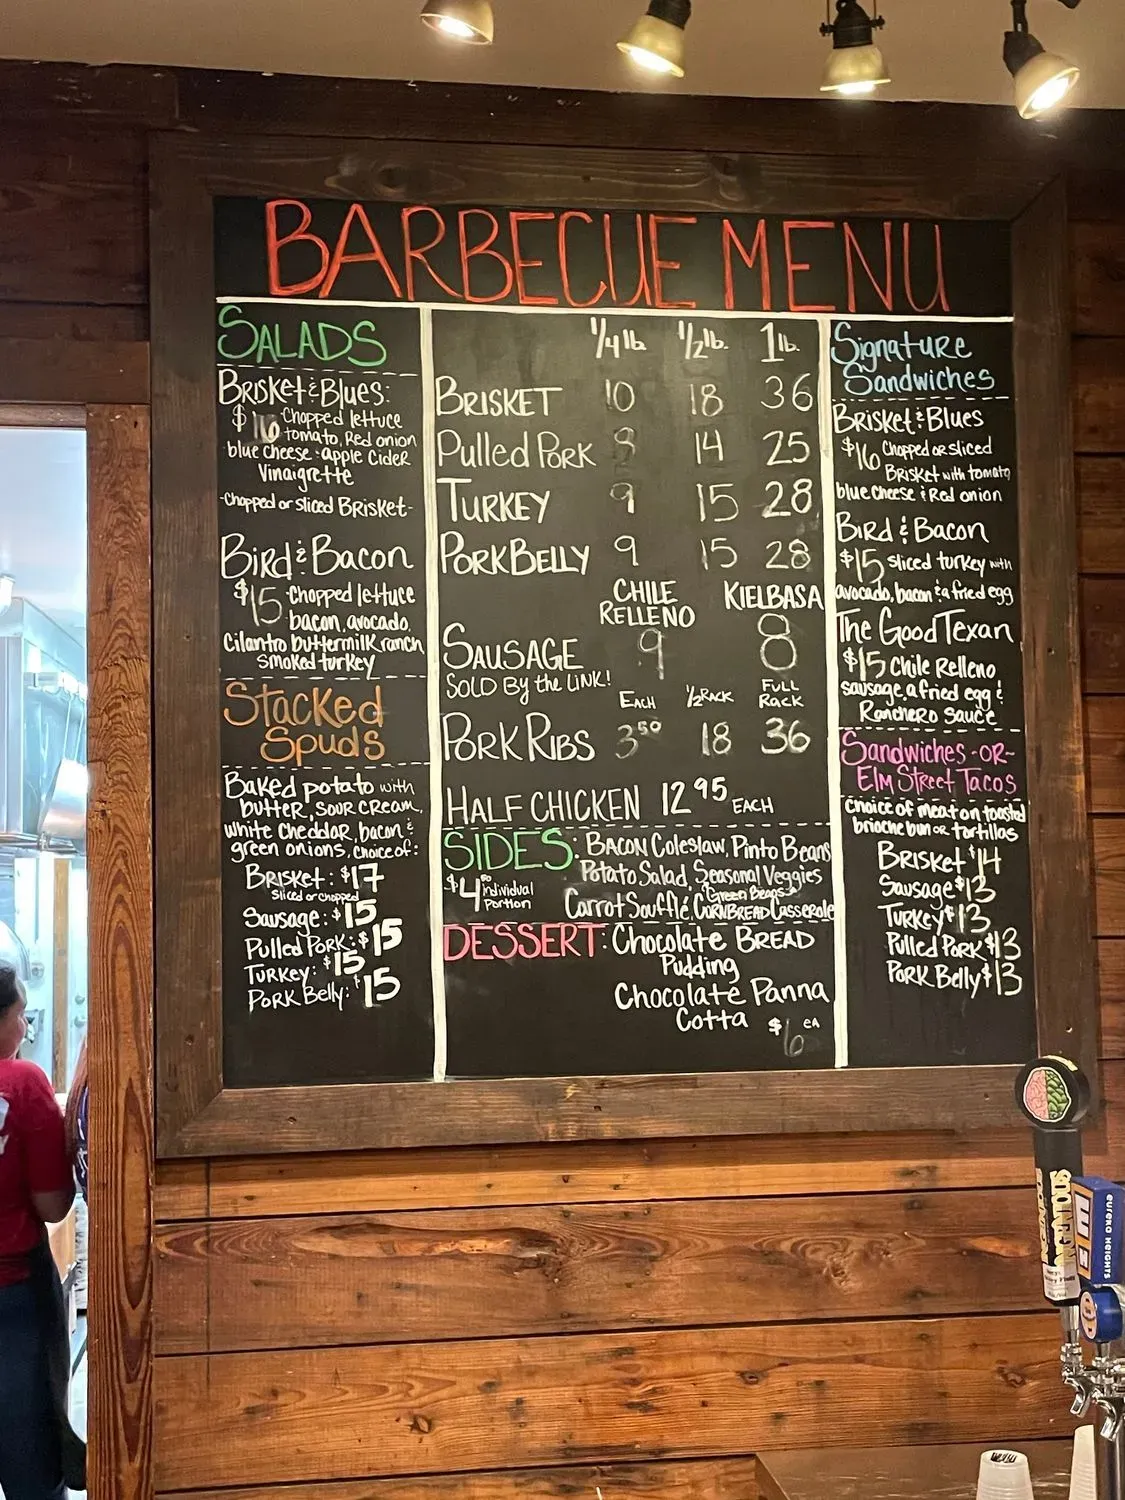 BARBECUE MENU
SALADS
Brisket & Blues:
$16 Chopped lettuce
tomato, Red onion
blue cheese & apple Cider
Vinaigrette
-Chopped or sliced Brisket-
Bird & Bacon
$15 Chopped lettuce
bacon, avocado,
Cilantro buttermilk ranch,
smoked turkey
Stacked
Spuds
Baked potato with
butter, sour cream,
white cheddar, bacon &
green onions, choice of:
Brisket: $17
sliced or chopped
Sausage: $15
Pulled Pork: $15
Turkey: $15
Pork Belly: $15
1/4 lb. 1/2 lb. 1 lb.
BRISKET 10 18 36
Pulled Pork 8 14 25
TURKEY 9 15 28
PORK BELLY 9 15 28
CHILE RELLENO KIELBASA
SAUSAGE 9 8
SOLD By the LINK!
EACH 1/2 RACK FULL RACK
PORK RIBS 3.50 18 36
HALF CHICKEN 12.95 EACH
SIDES: BACON Coleslaw, Pinto Beans
Potato Salad, Seasonal Veggies
Green Beans
$4.00 individual Portion
Carrot Soufflé, CORNBREAD Casserole
DESSERT: Chocolate BREAD
Pudding
Chocolate Panna
Cotta $6 EA
Signature
Sandwiches
Brisket & Blues
$16 Chopped or sliced
Brisket with tomato
blue cheese & Red onion
Bird & Bacon
$15 sliced turkey with
avocado, bacon & a fried egg
The Good Texan
$15 Chile Relleno
sausage, a fried egg &
Ranchero Sauce
Sandwiches -OR-
Elm Street Tacos
choice of meat on toasted
brioche bun or tortillas
Brisket $14
Sausage $13
Turkey $13
Pulled Pork $13
Pork Belly $13
EUREKA HEIGHTS